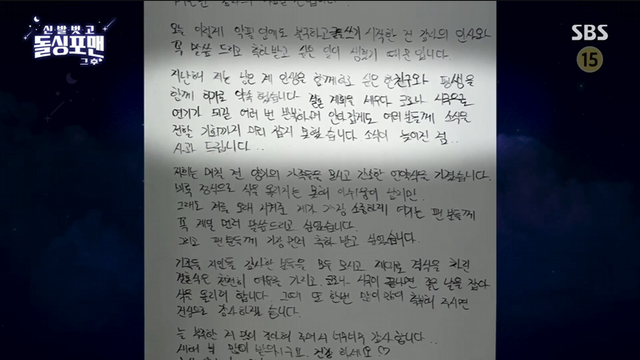 신발벗고
돌싱포맨
그후
SBS
15
오늘 이렇게 악필임에도 불구하고 쓰기 시작한 건 감사의 인사와
꼭 말씀 드리고 축하받고 싶은 일이 생겼기 때문입니다.
지난해 저는 남은 제 인생을 함께하고 싶은 한 친구와 평생을
함께 하기로 약속 했습니다. 결혼 계획을 세우다 코로나 시국으로
연기가 되길 여러 번 반복하며 안타깝게도 여러분들께 소식을
전할 기회까지 미처 잡지 못했습니다. 소식이 늦어진 점..
사과 드립니다..
저희는 며칠 전 양가의 가족들을 모시고 간소한 언약식을 가졌습니다.
비록 정식으로 식을 올리지는 못해 아쉬움이 남지만..
그래도 저를 오래 지켜준 제가 가장 소중하게 여기는 팬 분들께
꼭 제일 먼저 말씀드리고 싶었습니다.
그리고 팬분들께 가장 먼저 축하 받고 싶었습니다.
가족들 지인들 감사한 분들을 모두 모시고 제대로 격식을 차린
결혼식은 천천히 여유를 가지고.. 코로나 시국이 끝나면 좋은 날을 잡아
식을 올리려 합니다. 그때 또 한번 많이많이 축복해 주시면
진심으로 감사하겠습니다.
늘 부족한 저
주셔서 너무너무 감사합니다..
새해 복 많이 받으시구요.. 건강하세요♡